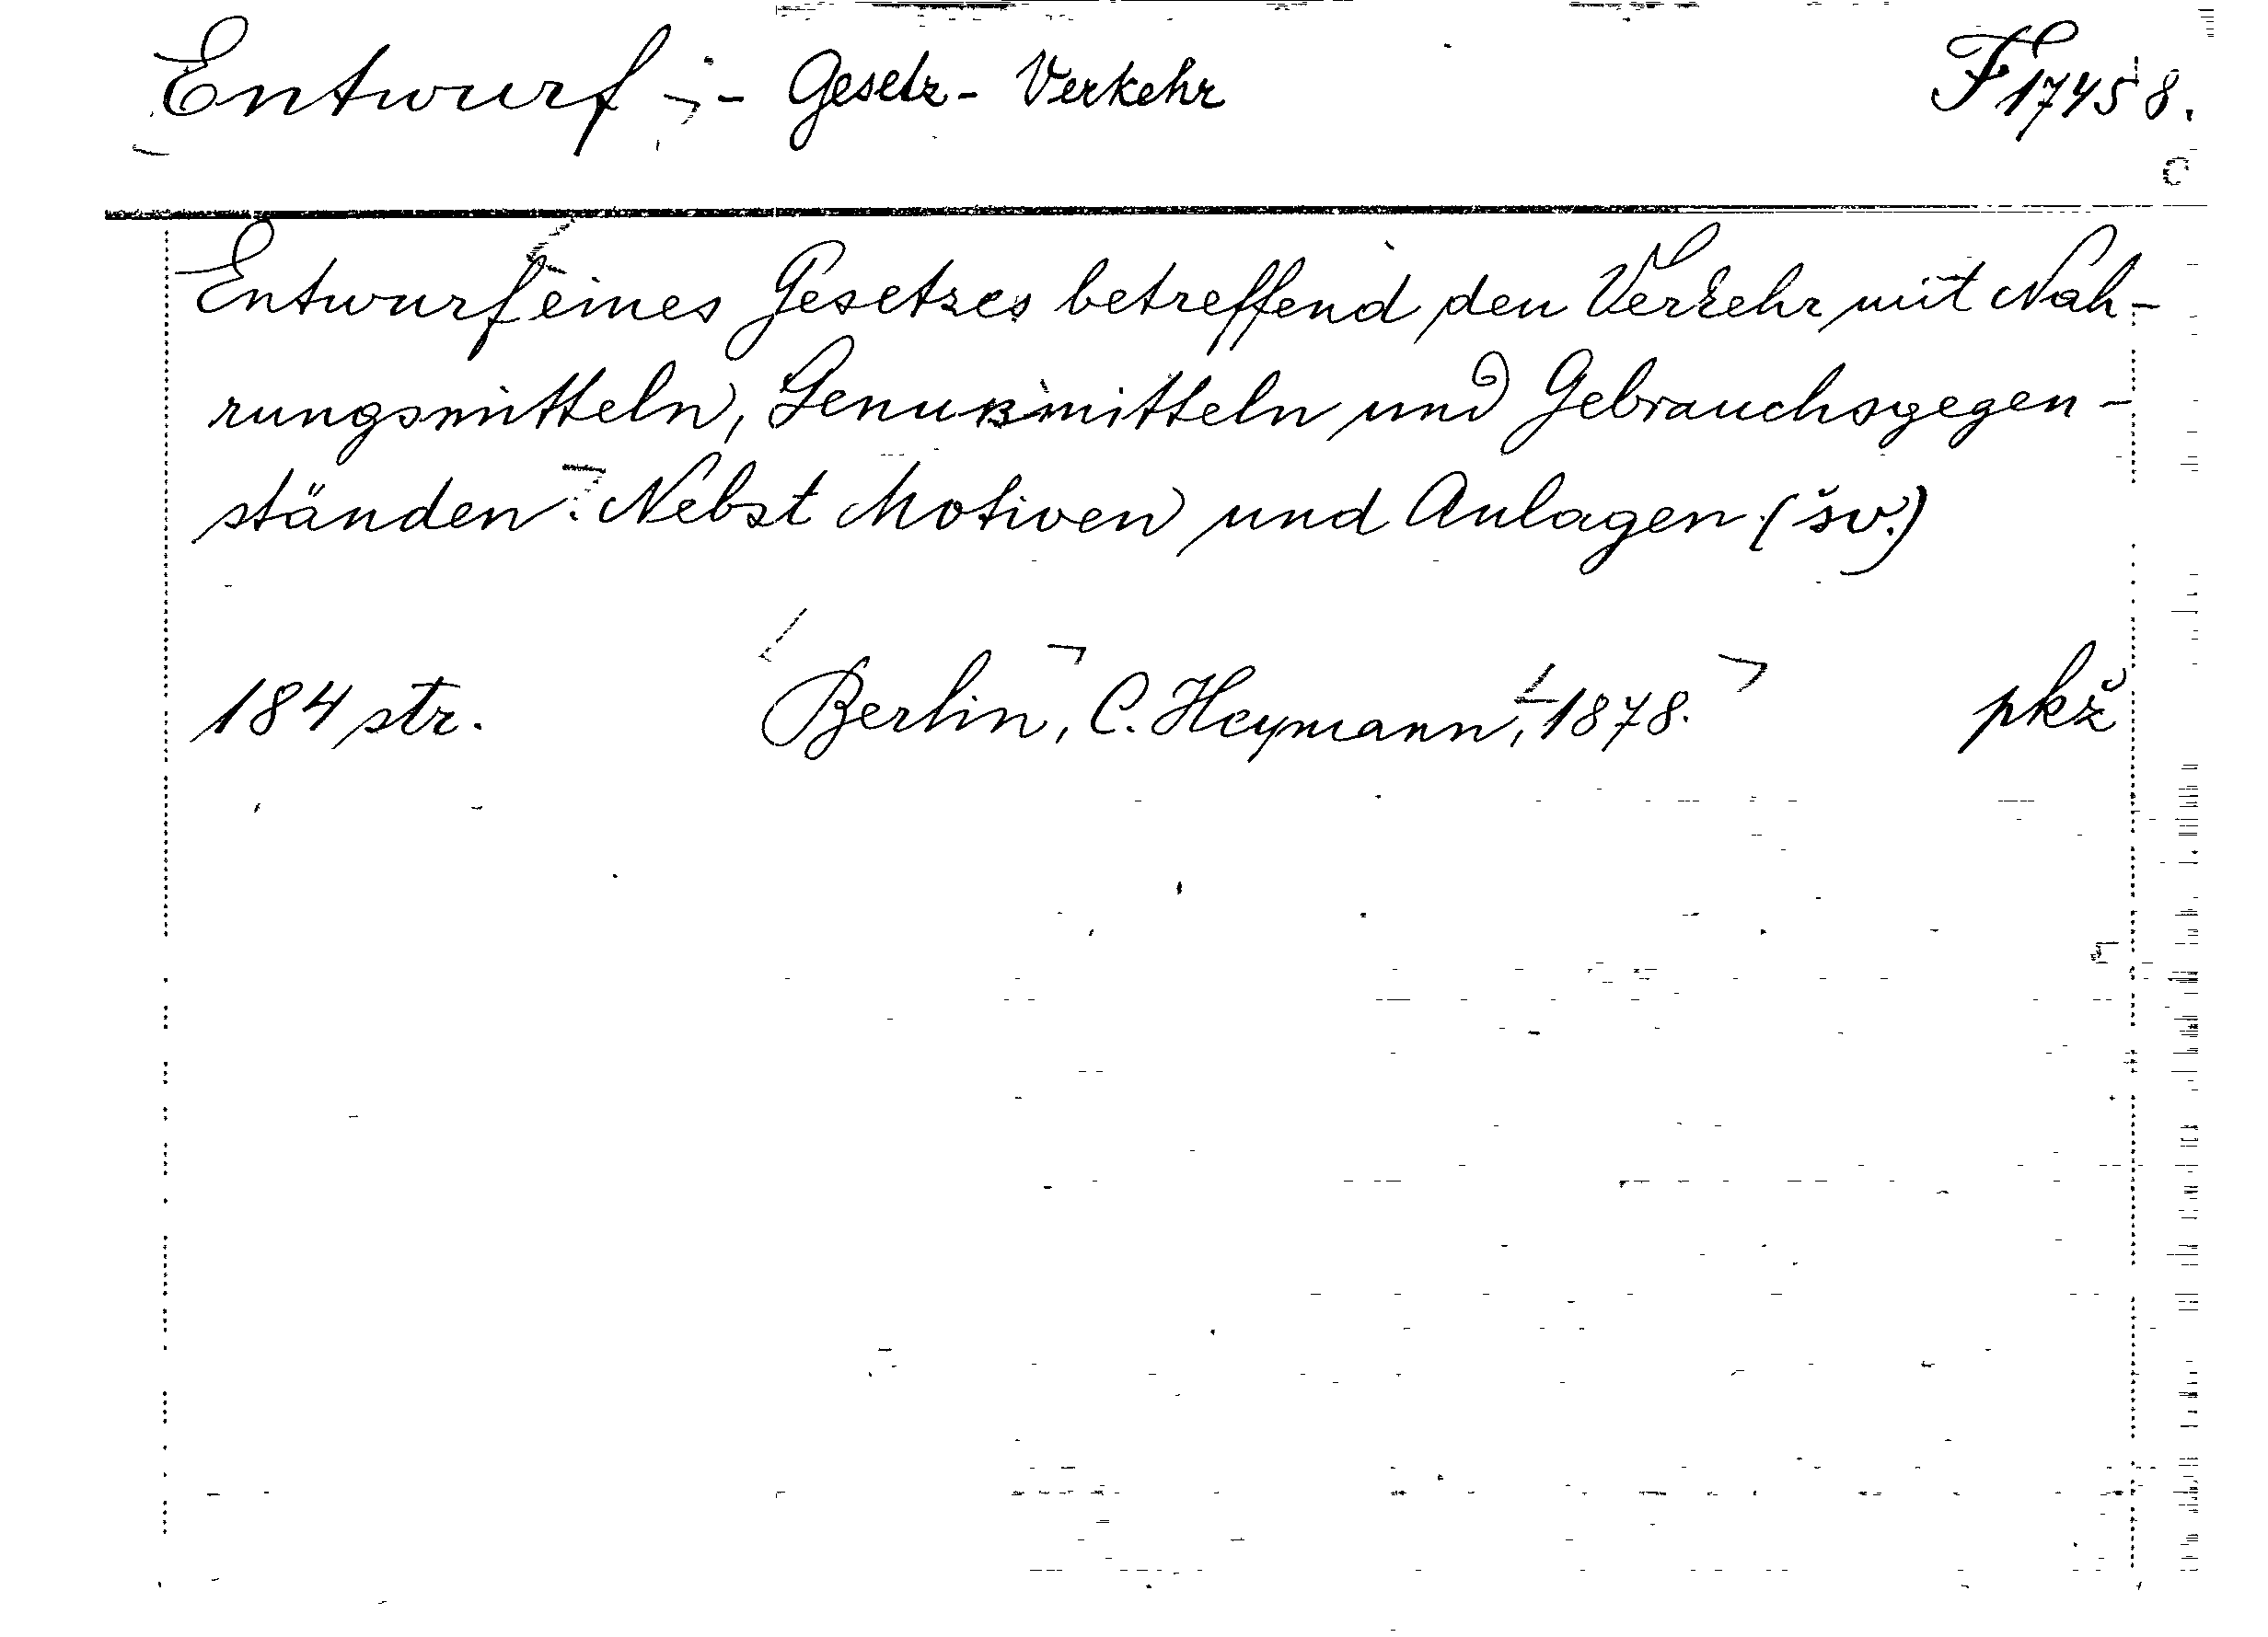 Entwurf - Gesetz - Verkehr F 17458.
Entwurf eines Gesetzes betreffend den Verkehr mit Nah-
rungsmitteln, Genußmitteln und Gebrauchsgegen-
ständen. Nebst Motiven und Anlagen (šv.)
184 str. Berlin, C. Heymann, 1878. pkž